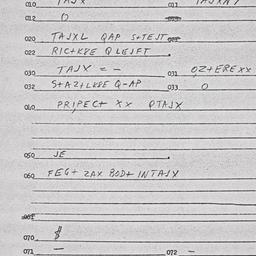 010 TAJX 011 TAJXNY
012 O
020 TAJXL QAP S+TEJT
022 RIC+KPE QLEJFT.
030 TAJX = - 031 OZ+EREXX
032 S+AZ+LKPE Q-AP 033 O
040 PRIPEC+ XX QTAJX
050 JE
060 FEG+ ZAX BOD+ INTAJX
070 $
071 — 072 —